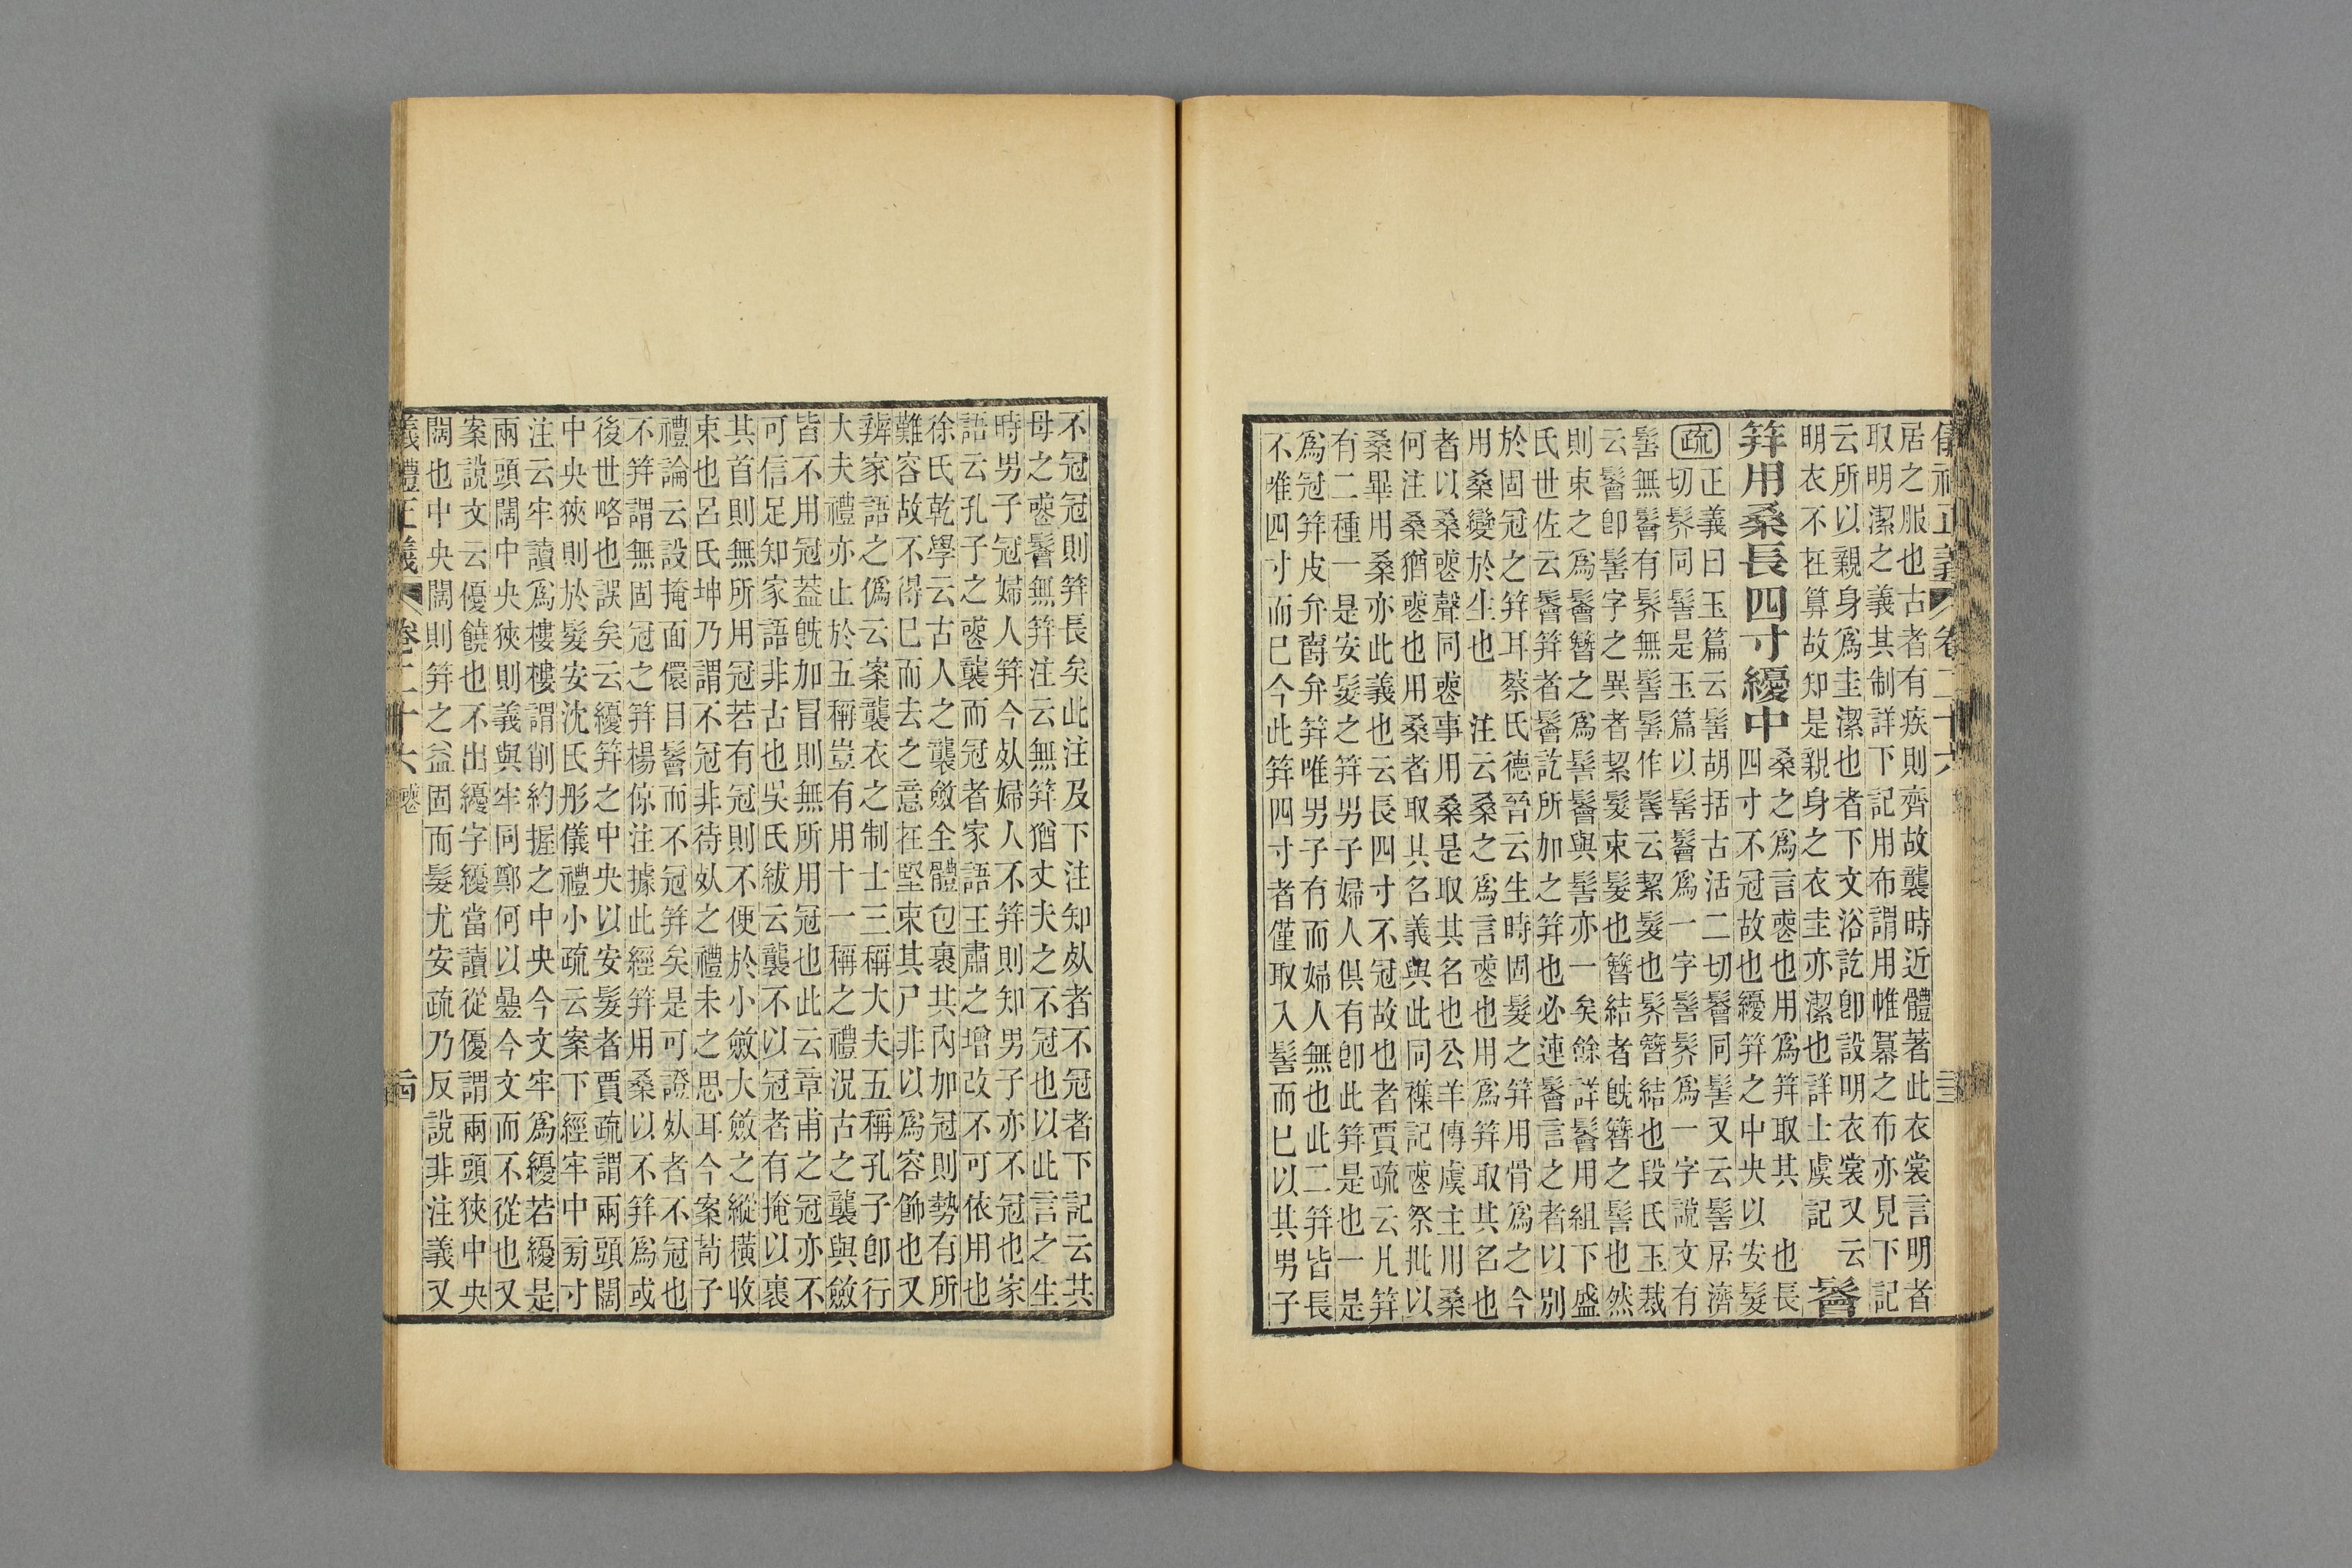 儀禮正義 卷二十六
居之服也古者有疾則齊故襲時近體著此衣裳言明者
取明潔之義其制詳下記用布謂用帷幕之布亦見下記
云所以親身爲圭潔也者下文浴訖卽設明衣裳又云
明衣不在算故知是親身之衣圭亦潔也詳士虞記
鬠
笄用桑長四寸纋中
桑之爲言喪也用爲笄取其名也長
四寸不冠故也纋笄之中央以安髮
疏
正義曰玉篇云髺胡括古活二切鬠同髺又云髺居濟
切髻同髺是玉篇以髺鬠爲一字髺髻爲一字說文有
髺無鬠有髻無髺髺作髺云絜髮也髻簪結也段氏玉裁
云鬠卽髺字之異者絜髮束髮也簪結者旣簪之髺也然
則束之爲鬠簪之爲髻鬠與髺亦一矣餘詳鬠用組下盛
氏世佐云鬠笄者鬠訖所加之笄也必連鬠言之者以別
於固冠之笄耳蔡氏德晉云生時固髮之笄用骨爲之今
用桑變於生也 注云桑之爲言喪也用爲笄取其名也
者以桑喪聲同喪事用桑是取其名也公羊傳虞主用桑
何注桑猶喪也用桑者取其名義與此同襍記喪祭枇以
桑畢用桑亦此義也云長四寸不冠故也者賈疏云凡笄
有二種一是安髮之笄男子婦人俱有卽此笄是也一是
爲冠笄皮弁爵弁笄唯男子有而婦人無也此二笄皆長
不唯四寸而已今此笄四寸者僅取入髺而已以其男子
不冠冠則笄長矣此注及下注知死者不冠者下記云其
母之喪鬠無笄注云無笄猶丈夫之不冠也以此言之生
時男子冠婦人笄今死婦人不笄則知男子亦不冠也家
語云孔子之喪襲而冠者家語王肅之增改不可依用也
徐氏乾學云古人之襲斂全體包裹其內加冠則勢有所
難容故不得已而去之意在堅束其尸非以爲容飾也又
辨家語之僞云案襲衣之制士三稱大夫五稱孔子卽行
大夫禮亦止於五稱豈有用十一稱之禮況古之襲與斂
皆不用冠蓋旣加冒則無所用冠也此云章甫之冠亦不
可信足知家語非古也吳氏紱云襲不以冠者有掩以裹
其首則無所用冠若有冠則不便於小斂大斂之縱橫收
束也呂氏坤乃謂不冠非待死之禮未之思耳今案荀子
禮論云設掩面儇目鬠而不冠笄矣是可證死者不冠也
不笄謂無固冠之笄楊倞注據此經笄用桑以不笄爲或
後世略也誤矣云纋笄之中央以安髮者賈疏謂兩頭闊
中央狹則於髮安沈氏彤儀禮小疏云案下經牢中旁寸
注云牢讀爲樓樓謂削約握之中央今文牢爲纋若纋是
兩頭闊中央狹則義與牢同鄭何以疊今文而不從也又
案說文云優饒也不出纋字纋當讀從優謂兩頭狹中央
闊也中央闊則笄之益固而髮尤安疏乃反說非注義又
義禮正義 卷二十六 喪